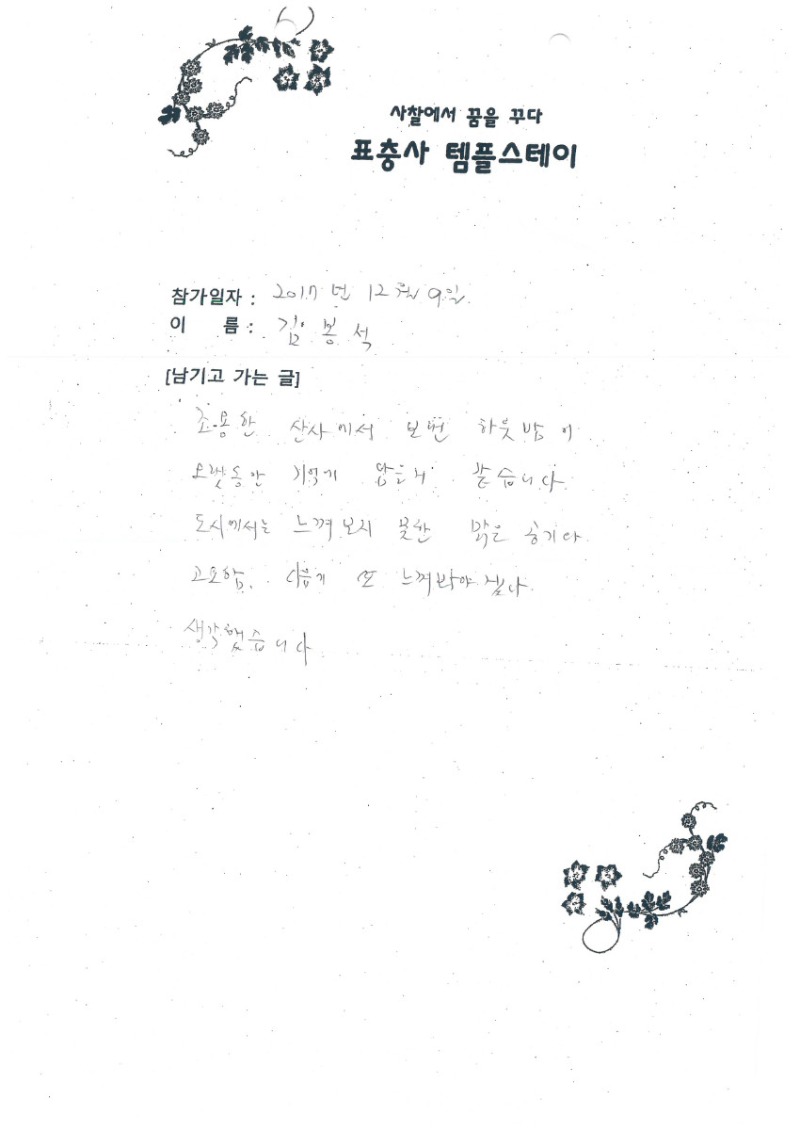 사찰에서 꿈을 꾸다
표충사 템플스테이
참가일자 : 2017년 12월 9일.
이 름 : 김봉석
[남기고 가는 글]
조용한 산사에서 보낸 하룻밤이
오랫동안 기억에 남을거 같습니다.
도시에서는 느껴보지 못한 맑은 공기와
고요함. 다음에 또 느껴봐야 겠다.
생각했습니다